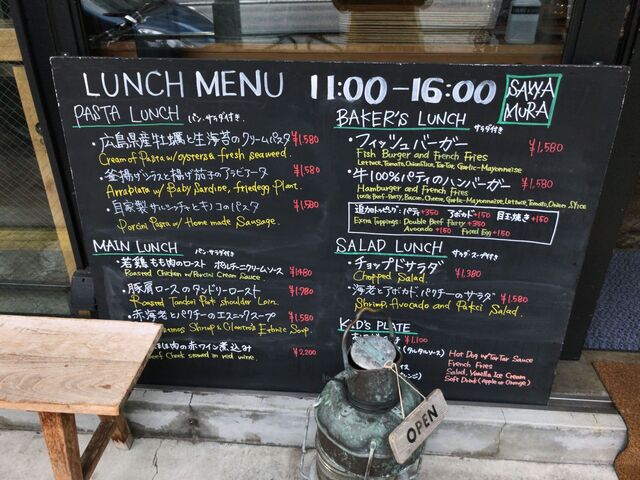 LUNCH MENU 11:00-16:00 SAWA
MURA
PASTA LUNCH パン・サラダ付き.
・広島県産牡蠣と生海苔のクリームパスタ ¥1,580
Cream of Pasta w/oysters & fresh seaweed.
・釜揚げシラスと揚げ茄子のアラビアータ ¥1,580
Arrabiata w/Baby Sardine, friedegg Plant.
・自家製サルシッチャとキノコのパスタ ¥1,580
Porcini Pasta w/Home made Sausage.
MAIN LUNCH パン・サラダ付き
・若鶏もも肉のロースト ポルチーニクリームソース ¥1,480
Roasted Chicken w/Porcini Cream Sauce.
・豚肩ロースのタンドリーロースト ¥1,780
Roasted Tandori Pork shoulder Loin.
・赤海老とパクチーのエスニックスープ ¥1,580
Shrimp & Cilantro's Ethnic Soup.
肉の赤ワイン煮込み ¥2,200
Beef Cheek served in red wine.
BAKER'S LUNCH サラダ付き.
・フィッシュバーガー ¥1,580
Fish Burger and French Fries
Lettuce, Tomato, Onion Slice, Tartar, Garlic-Mayonnaise
・牛100%パティのハンバーガー ¥1,580
Hamburger and French Fries
100% Beef-Patty, Bacon, Cheese, Garlic-Mayonnaise, Lettuce, Tomato, Onion Slice
追加トッピング: パティ+350 アボカド+150 目玉焼き+150
Extra Toppings: Double Beef Patty +350
Avocado +150 Fried Egg +150
SALAD LUNCH サラダ・スープ付き
・チョップドサラダ ¥1,380
Chopped Salad.
・海老とアボカド、パクチーのサラダ ¥1,580
Shrimp, Avocado and Pakci Salad.
KID'S PLATE
¥1,100
(タルタルソース) Hot Dog w/TarTar Sauce
French Fries
Salad, Vanilla Ice Cream
Soft Drink (Apple or Orange)
OPEN